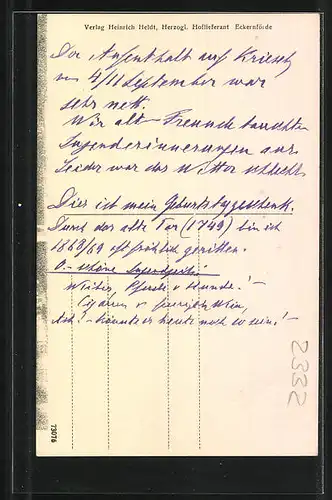 Verlag Heinrich Heldt, Herzogl. Hoflieferant Eckernförde
Der Aufenthalt auf
von 4/11 September war
sehr nett.
Wir alte Freunde tauschten
Jugenderinnerungen aus
Leider war das Wetter schlecht.
Dies ist mein Geburtstagsgeschenk.
Durch das alte Tor (1749) bin ich
1868/69 oft fröhlich geritten.
O schöne Jugendzeit
Weiber, Pferde u Hunde! -
Cigarren u
Ach! - könnte es heute noch so sein! -
73078
2332